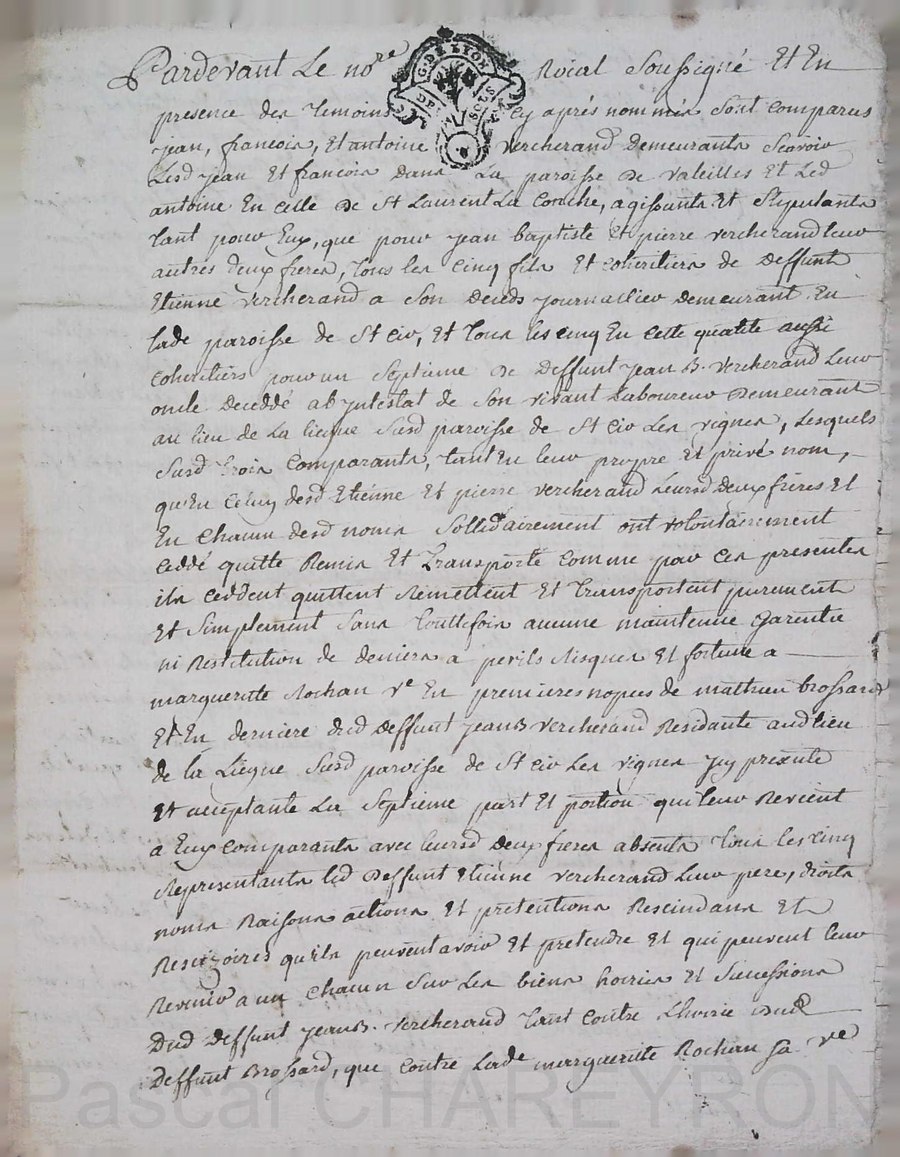 Pardevant Le no.re Roial Soussigné Et En
G. DE LYON
presence des temoins cy aprés nommés sont comparus
jean, francois, Et antoine vercherand demeurants scavoir
Lesd jean et francois dans La paroisse de valeilles Et Led
antoine En celle de St Laurent La Conche, agissants Et stipulants
tant pour Eux, que pour jean baptiste Et pierre vercherand leur
autres deux freres, tous les cinq fils Et coheritiers de deffunt
Etienne vercherand a son deceds journallier demeurant En
lade paroisse de St Cir, Et tous les cinq En cette qualite aussi
coheritiers pour un septieme de deffunt jean B. vercherand leur
oncle deceddé ab jntestat de son vivant Laboureur demeurant
au lieu de La liegue susd parroisse de St Cir Les vignes, Lesquels
susd trois comparants, tant En leur propre Et privé nom,
qu'En celuy desd Etienne Et pierre vercherand Leursd deux freres Et
En chacun desd noms sollidairement ont volontairement
ceddé quitté Remis Et transporté comme par ces presentes
ils ceddent quittent Remettent Et transportent purement
Et simplement sans touttefois aucune maintenue garentie
ni Restitution de deniers a perils Risques Et fortune a
margueritte Rochan ve En premieres nopces de mathieu brossard
Et En derniere dud deffunt jean B vercherand Residante aud lieu
de la Liegue susd parroisse de St Cir Les vignes jcy pr̃esente
Et acceptante La septieme part Et portion qui leur Revient
a Eux comparants avec leursd deux freres absents tous les cinq
Representants led deffunt Etienne vercherand leur pere, droits
noms Raisons actions Et pretentions Rescindans Et
Rescizoires qu'ils peuvent avoir Et pretendre Et qui peuvent leur
Revenir a un chacun sur Les biens hoirie Et successions
Dud deffunt jean B. vercherand tant contre Lhoirie dud
deffunt Brossard, que contre Lade marguerite Rochan sa ve
Pascal CHAREYRON